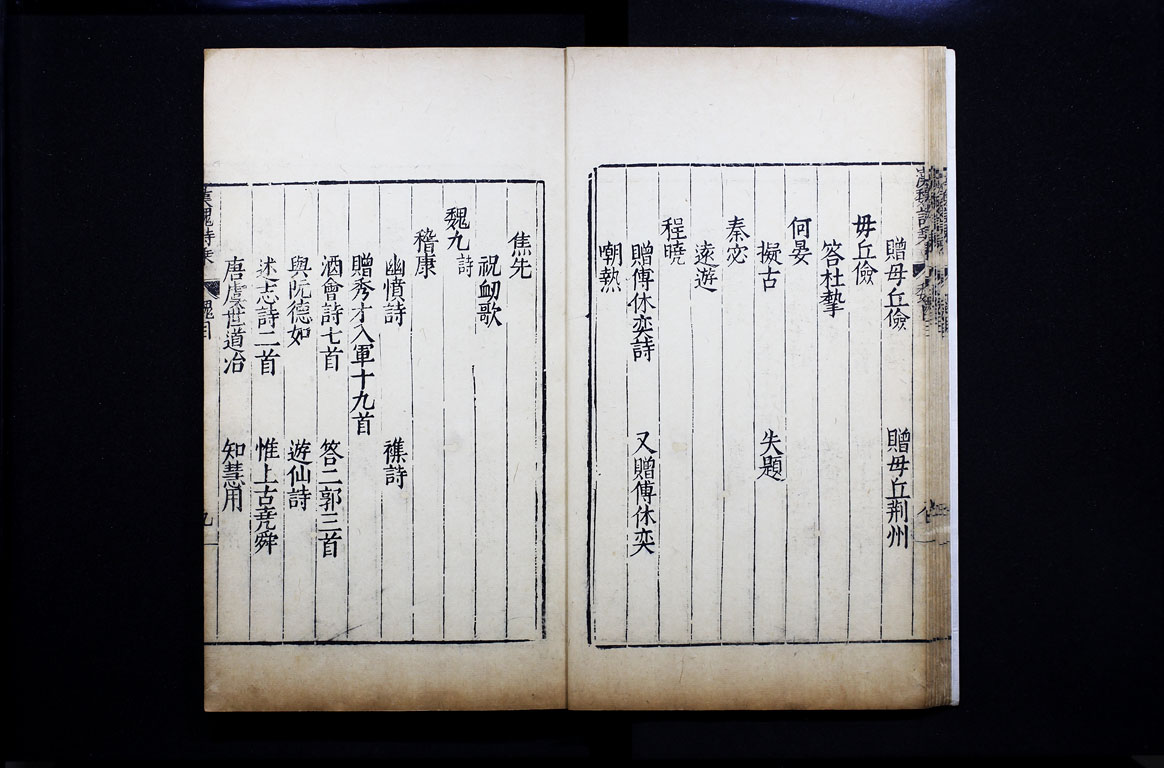 贈毋丘儉　贈毋丘荆州
毋丘儉
答杜摯
何晏
擬古　失題
秦宓
遠遊
程曉
贈傅休奕詩　又贈傅休奕
嘲熱
焦先
祝衂歌
魏九詩
嵇康
幽憤詩　襍詩
贈秀才入軍十九首
酒會詩七首　答二郭三首
與阮德如　遊仙詩
述志詩二首　惟上古堯舜
唐虞世道治　知慧用
漢魏詩乘　魏目　九